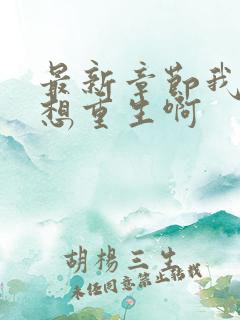 最新章节我
想重生啊
胡杨三生
未经同意禁止转载